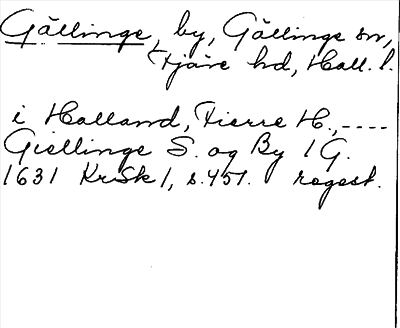 Gällinge, by, Gällinge sn,
Fjäre hd, Hall. l.
i Halland, Fierre H., ----
Giellinge S. og By 1 G.
1631 KrSk 1, s. 451. regest.